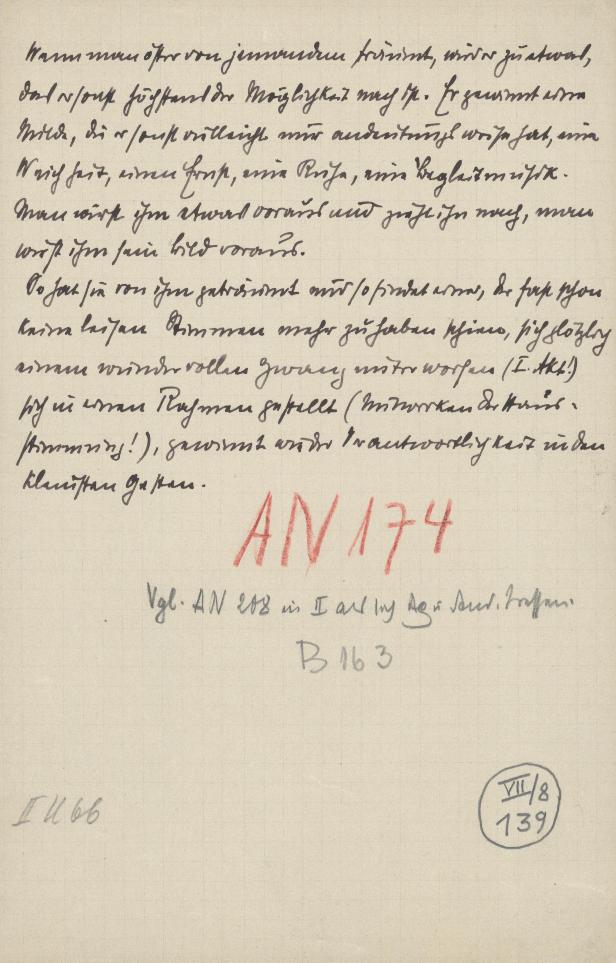 Wenn man öfter von jemandem träumt, wird er zu etwas,
das er sonst höchstens der Möglichkeit nach ist. Er gewinnt eine
Milde, die er sonst vielleicht nur andeutungsweise hat, eine
Weichheit, einen Ernst, eine Ruhe, eine Begleitmusik.
Man wirft ihm etwas voraus und zieht ihn nach, man
wirft ihm sein Bild voraus.
So hat sie von ihm geträumt und so findet einer, der fast schon
keine leisen Stimmen mehr zu haben schien, sich plötzlich
einem wundervollen Zwang unterworfen (I. Akt!)
sich in einen Rahmen gestellt (Mitwirken der Haus-
stimmung!), gewinnt wieder Verantwortlichkeit in den
kleinsten Gesten.
AN 174
Vgl. AN 208 in II als sich Ag u And. treffen.
B 163
II U 66
VII/8
139